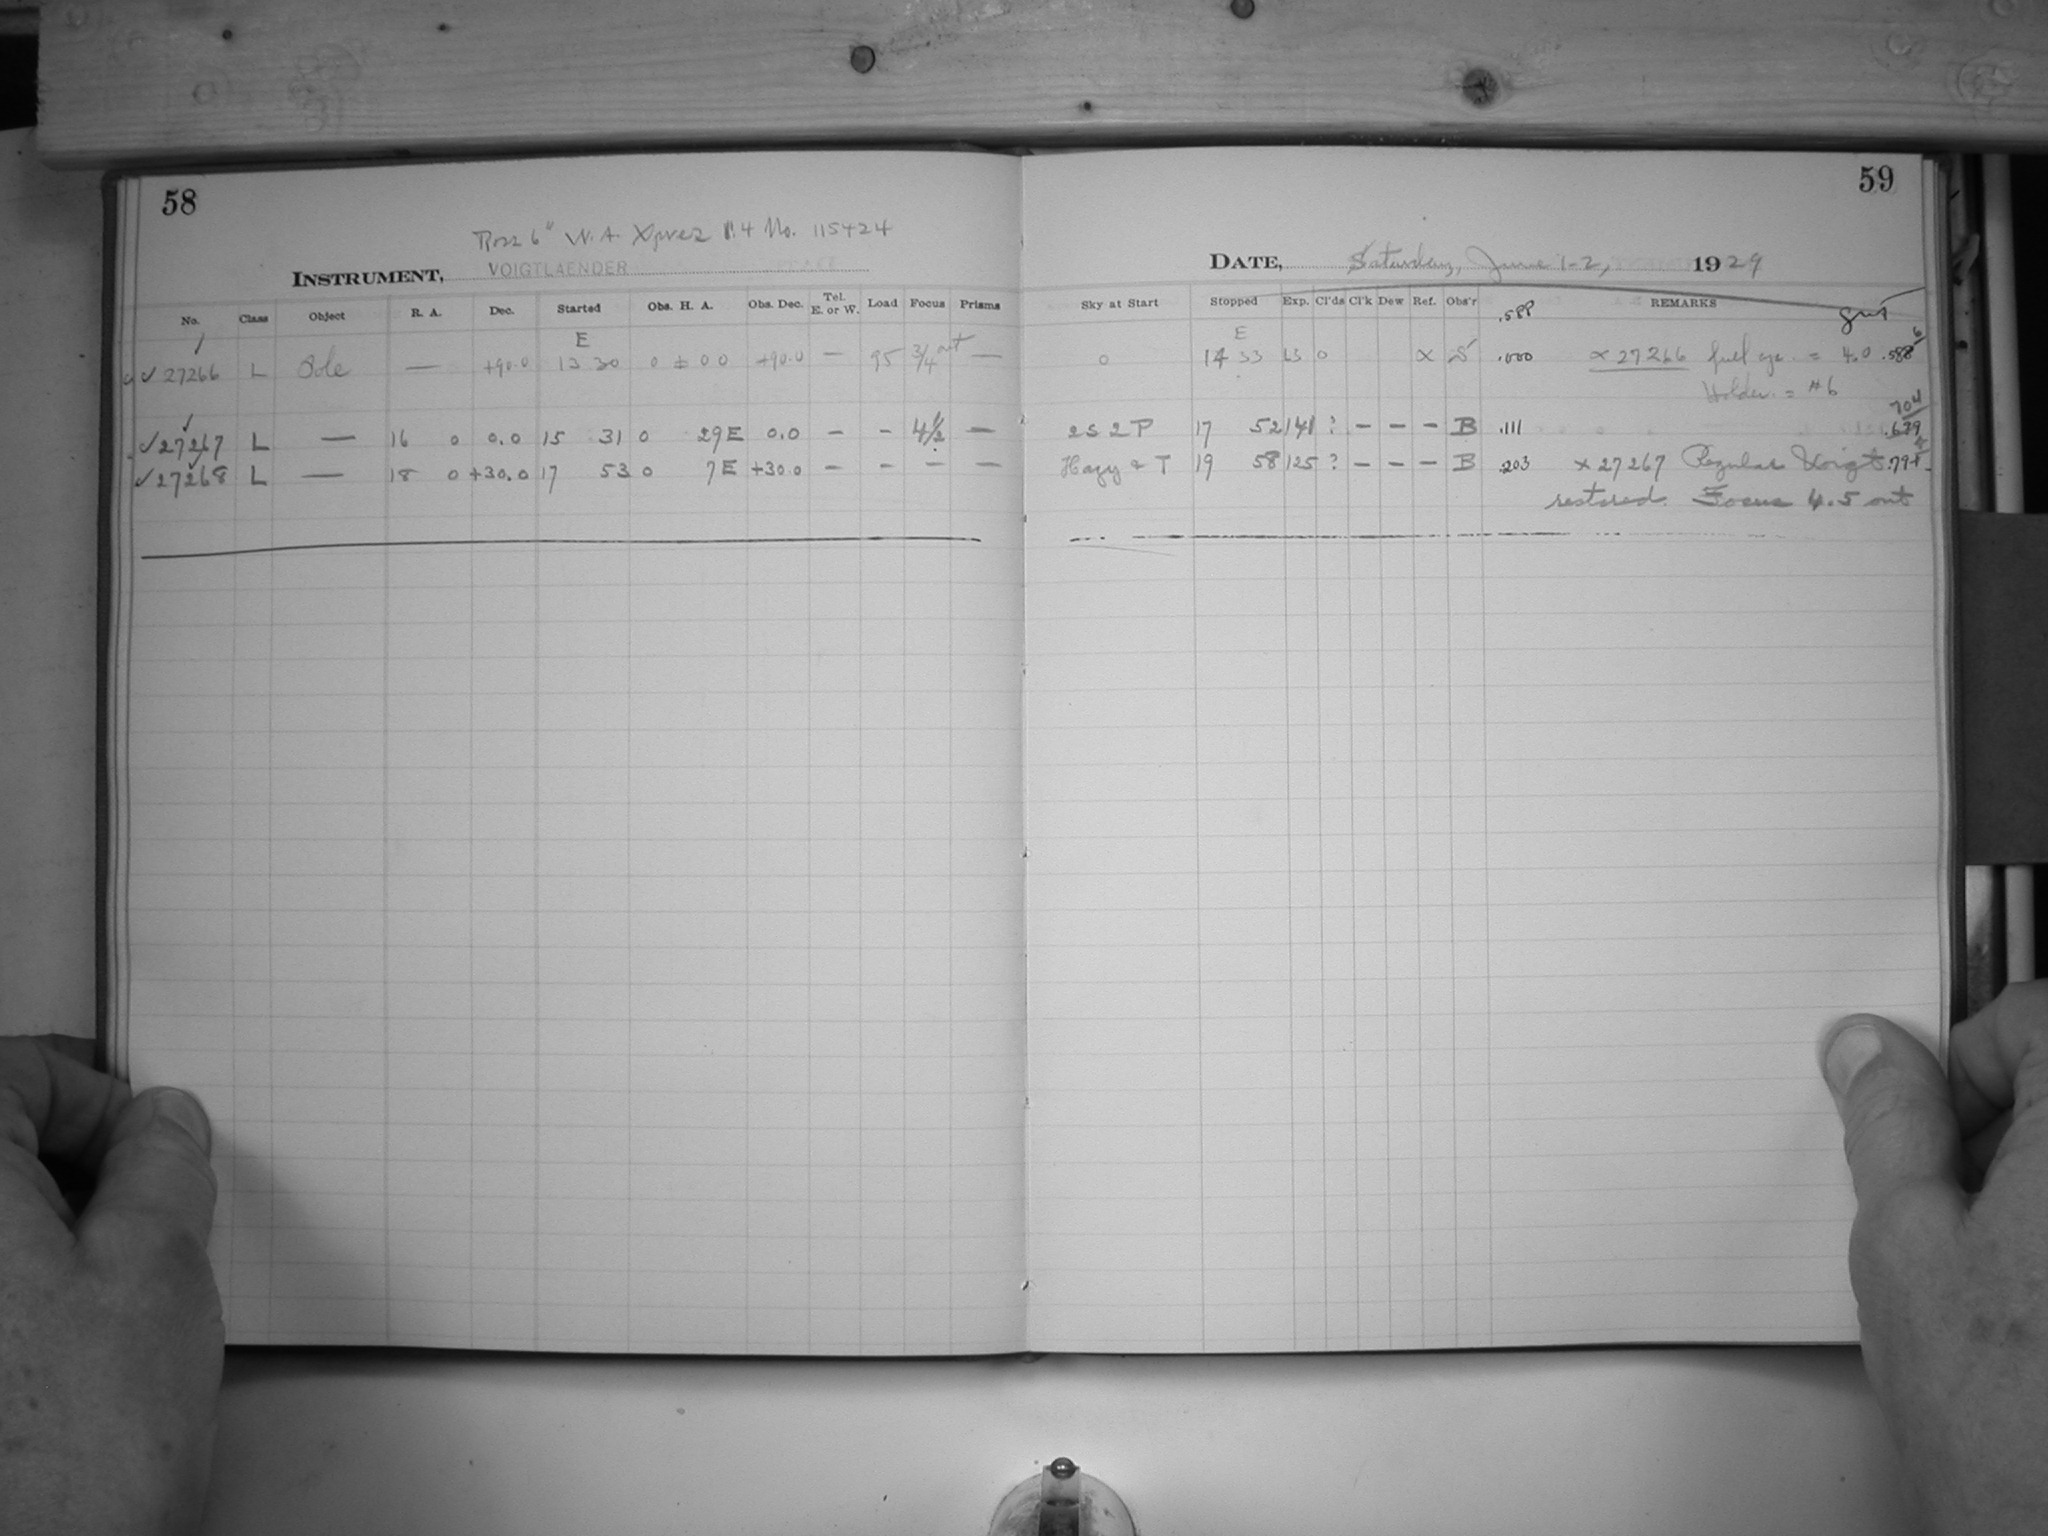 58
59
Ross 6" W.A. Xpres f.4 No. 115424
INSTRUMENT, VOIGTLAENDER
DATE, Saturday, June 1-2, 1929
No. Class Object R. A. Dec. Started Obs. H. A. Obs. Dec. Tel. E. or W. Load Focus Prisms
Sky at Start Stopped Exp. Cl'ds Cl'k Dew Ref. Obs'r REMARKS
E E
✓ 27266 L Pole — +90.0 13 30 0 ± 0 0 +90.0 — 95 3/4 out — 0 14 33 63 0 × .000 × 27266 = 4.0 .588
Holder = #6
✓ 27267 L — 16 0 0.0 15 31 0 29 E 0.0 — — 4 1/2 — 2 S 2 P 17 52 141 ? — — — B .111
✓ 27268 L — 18 0 +30.0 17 53 0 7 E +30.0 — — — — Hazy & T 19 58 125 ? — — — B .203 × 27267 Regular Voigt
restored. Focus 4.5 out